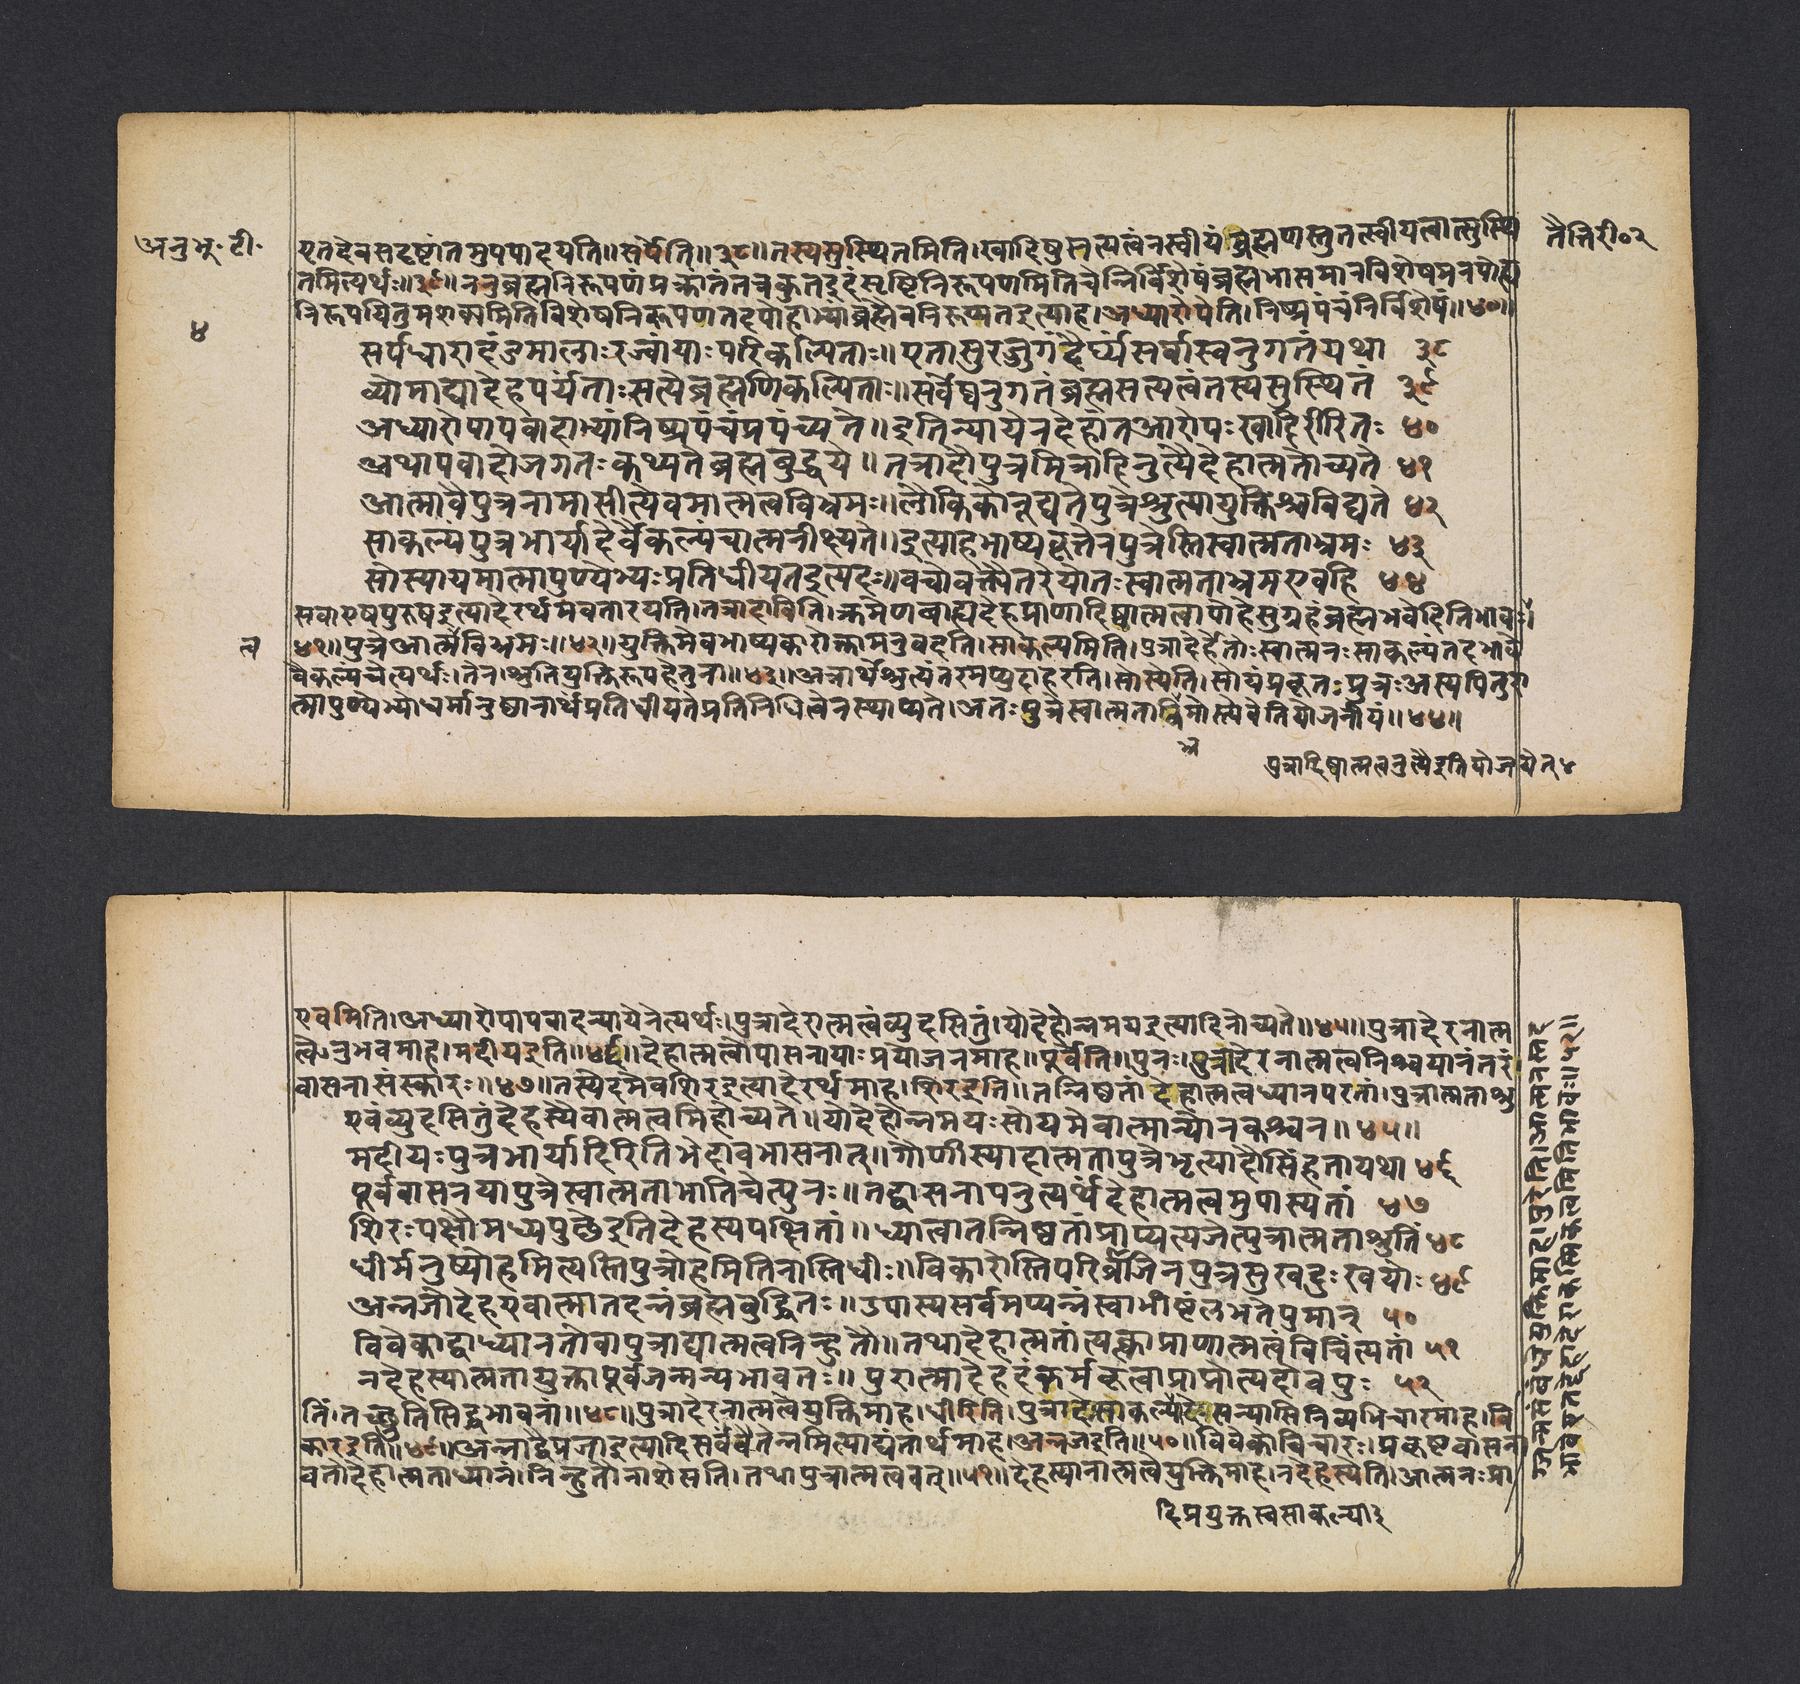 अनुभू॰टी॰
४
तैत्तिरी०२
एतदेवसदृष्टांतमुपपादयति॥सर्पेति॥३८॥तस्यसुस्थितमिति।खादिषुसत्यत्वंनस्वीयंब्रह्मणस्तुतत्स्वीयत्वात्सुस्थि
तमित्यर्थः॥३९॥ननुब्रह्मनिरूपणंप्रक्रांतंतत्रकुतइदंसृष्टिनिरूपणमितिचेन्निर्विशेषंब्रह्मभासमानविशेषमनपोह्य
निरूपयितुमशक्यमितिविशेषनिरूपणतदपोहाभ्यांब्रह्मैवनिरूप्यतइत्याह।अध्यारोपेति।निष्प्रपंचंनिर्विशेषं॥४०॥
सर्पधारादंडमालाःरज्वांयाःपरिकल्पिताः॥एतासुरज्जुगंदैर्घ्यंसर्वास्वनुगतंयथा ३८
व्योमाद्यादेहपर्यंताःसत्येब्रह्मणिकल्पिताः॥सर्वेष्वनुगतंब्रह्मसत्यत्वंतस्यसुस्थितं ३९
अध्यारोपापवादाभ्यांनिष्प्रपंचंप्रपंच्यते॥इतिन्यायेनदेहांतआरोपःखादिरीरितः ४०
अथापवादोजगतःकथ्यतेब्रह्मबुद्धये॥तत्रादौपुत्रमित्रादिनुत्यैदेहात्मतोच्यते ४१
आत्मावैपुत्रनामासीत्येवमात्मत्वविभ्रमः॥लौकिकोनूद्यतेपुत्रेश्रुत्यायुक्तिश्चविद्यते ४२
साकल्यंपुत्रभार्यादेर्वैकल्यंचात्मनीक्ष्यते॥इत्याहभाष्यकृत्तेनपुत्रेस्तिस्वात्मताभ्रमः ४३
सोस्यायमात्मापुण्येभ्यःप्रतिधीयतइत्यदः॥वचोवक्त्यैतरेयोतःस्वात्मताभ्रमएवहि ४४
सवाएषपुरुषइत्यादेरर्थमवतारयति।तत्रादाविति।क्रमेणबाह्यदेहप्राणादिष्वात्मत्वापोहेसुग्रहंब्रह्मभवेदितिभावः।
४१॥पुत्रेआत्मविभ्रमः॥४२॥युक्तिमेवभाष्यकारोक्तामनुवदति।साकल्यमिति।पुत्रादेर्हेतोःस्वात्मनःसाकल्यंतदभावे
त्व
वैकल्यंचेत्यर्थः।तेन।श्रुतियुक्तिरूपहेतुना॥४३॥अत्रार्थेश्रुत्यंतरमप्युदाहरति।सोस्येति।सोयंप्रकृतःपुत्रःअस्यपितुरा
त्मापुण्येभ्योधर्मानुष्ठानार्थंप्रतिधीयतेप्रतिनिधित्वेनस्थाप्यते।अतःपुत्रेस्वात्मताभ्रमोस्त्येवेतियोजनीयं॥४४॥
पुत्रादिष्वात्मत्वनुत्यैइतियोजयेत्४
एवमिति।अध्यारोपापवादन्यायेनेत्यर्थः।पुत्रादेरात्मत्वंव्युदसितुं।योदेहोन्नमयइत्यादिनोच्यते॥४५॥पुत्रादेरनात्म
त्वेऽनुभवमाह।मदीयइति॥४६॥देहात्मत्वोपासनायाःप्रयोजनमाह॥पूर्वेति॥पुनः।पुत्रादेरनात्मत्वनिश्चयानंतरं।
वासनासंस्कारः॥४७॥तस्येदमेवशिरइत्यादेरर्थमाह।शिरइति॥तन्निष्ठतां।देहात्मत्वध्यानपरतां।पुत्रात्मताश्रु
एवंव्युदसितुंदेहस्यैवात्मत्वमिहोच्यते॥योदेहोन्नमयःसोयमेवात्मान्योनकश्चन॥४५॥
मदीयःपुत्रभार्यादिरितिभेदावभासनात्॥गौणीस्यादात्मतापुत्रभृत्यादौसिंहतायथा ४६
पूर्ववासनयापुत्रेस्वात्मताभातिचेत्पुनः॥तद्वासनापनुत्त्यर्थंदेहात्मत्वमुपास्यतां ४७
शिरःपक्षौमध्यपुच्छेइतिदेहस्यपक्षितां॥ध्यात्वातन्निष्ठतांप्राप्यत्यजेत्पुत्रात्मताश्रुतिं४८
धीर्मनुष्योहमित्यस्तिपुत्रोहमितिनास्तिधीः॥विकारोस्तिपरिव्राजिनपुत्रसुखदुःखयोः ४९
अन्नजोदेहएवात्मातदन्नंब्रह्मबुद्धितः॥उपास्यसर्वमप्यन्नंस्वाभीष्टंलभतेपुमान् ५०
विवेकाद्वाध्यानतोवापुत्राद्यात्मत्वनिन्हुतौ॥तथादेहात्मतांत्यक्त्वाप्राणात्मत्वंविचिंत्यतां ५१
नदेहस्यात्मतायुक्तापूर्वजन्मन्यभावतः॥पुरात्मादेहदंकर्मकृत्वाप्राप्नोत्यदोवपुः ५२
तिं।तच्छ्रुतिसिद्धभावनां॥४८॥पुत्रादेरनात्मत्वेयुक्तिमाह।धीरिति।पुत्रादेःसाकल्यादेःसन्यासिनिव्यभिचारमाह।वि
कारइति॥४९॥अन्नाद्वैप्रजाइत्यादिसर्वंवैतेन्नमित्याद्यंतार्थमाह।अन्नजइति॥५०॥विवेकोविचारः।प्रकृष्टवासना
वतोदेहात्मताध्यानं।निन्हुतौनाशेसति।तथापुत्रात्मत्ववत्॥५१॥देहस्यानात्मत्वेयुक्तिमाह।नदेहस्येति।आत्मनःप्रा
दिप्रयुक्तस्वसाकल्या३